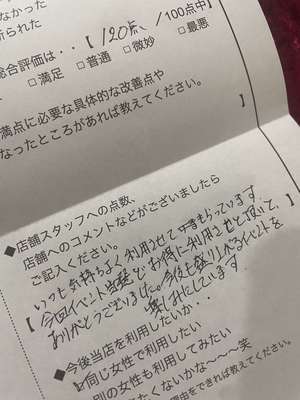 なかった
折られた
総合評価は・・【 120点 /100点中】
□満足 □普通 □微妙 □最悪
満点に必要な具体的な改善点や
なったところがあれば教えてください。
】
◆店舗スタッフへの点数、
店舗へのコメントなどがございましたら
ご記入ください。
【 いつも気持ちよく利用させて
今回イベント
ありがとうございました。今後も イベントを
楽しみにしています。
◆今後当店を利用したいか・・
同じ女性で利用したい
別の女性も利用してみたい
たくないかな〜〜〜笑
理由をできれば教えてください。